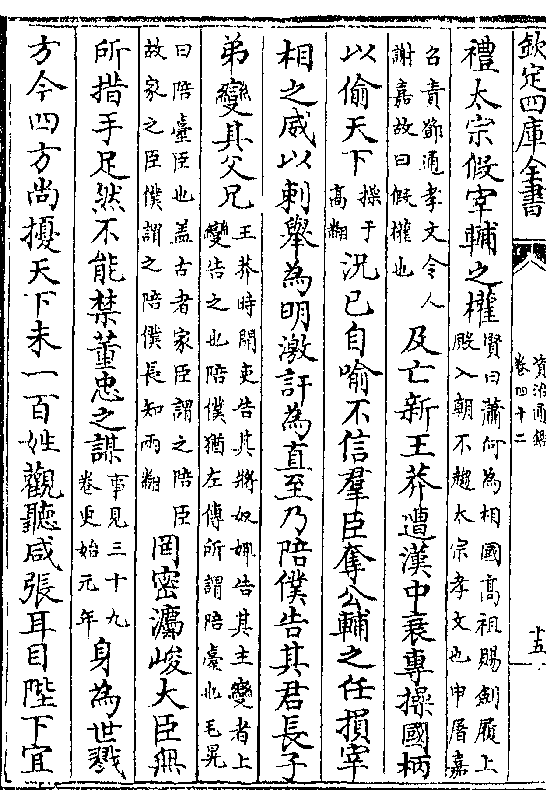 欽定四庫全書
資治通鑑
卷四十二
十五
禮太宗假宰輔之權賢曰蕭何為相國高祖賜劍履上
殿入朝不趨太宗孝文也申屠嘉
召責鄧通孝文令人
謝嘉故曰假權也及亡新王莽遭漢中衰專操國柄
以偷天下操于
高翻況已自喻不信羣臣奪公輔之任損宰
相之威以刺舉為明激訐為直至乃陪僕告其君長子
弟變其父兄王莽時開吏告其將奴婢告其主變者上
變告之也陪僕猶左傳所謂陪臺也毛晃
曰陪臺臣也盖古者家臣謂之陪臣
故家之臣僕謂之陪僕長知兩翻罔密灋峻大臣無
所措手足然不能禁董忠之謀事見三十九
卷更始元年身為世戮
方今四方尚擾天下未一百姓觀聽咸張耳目陛下宜